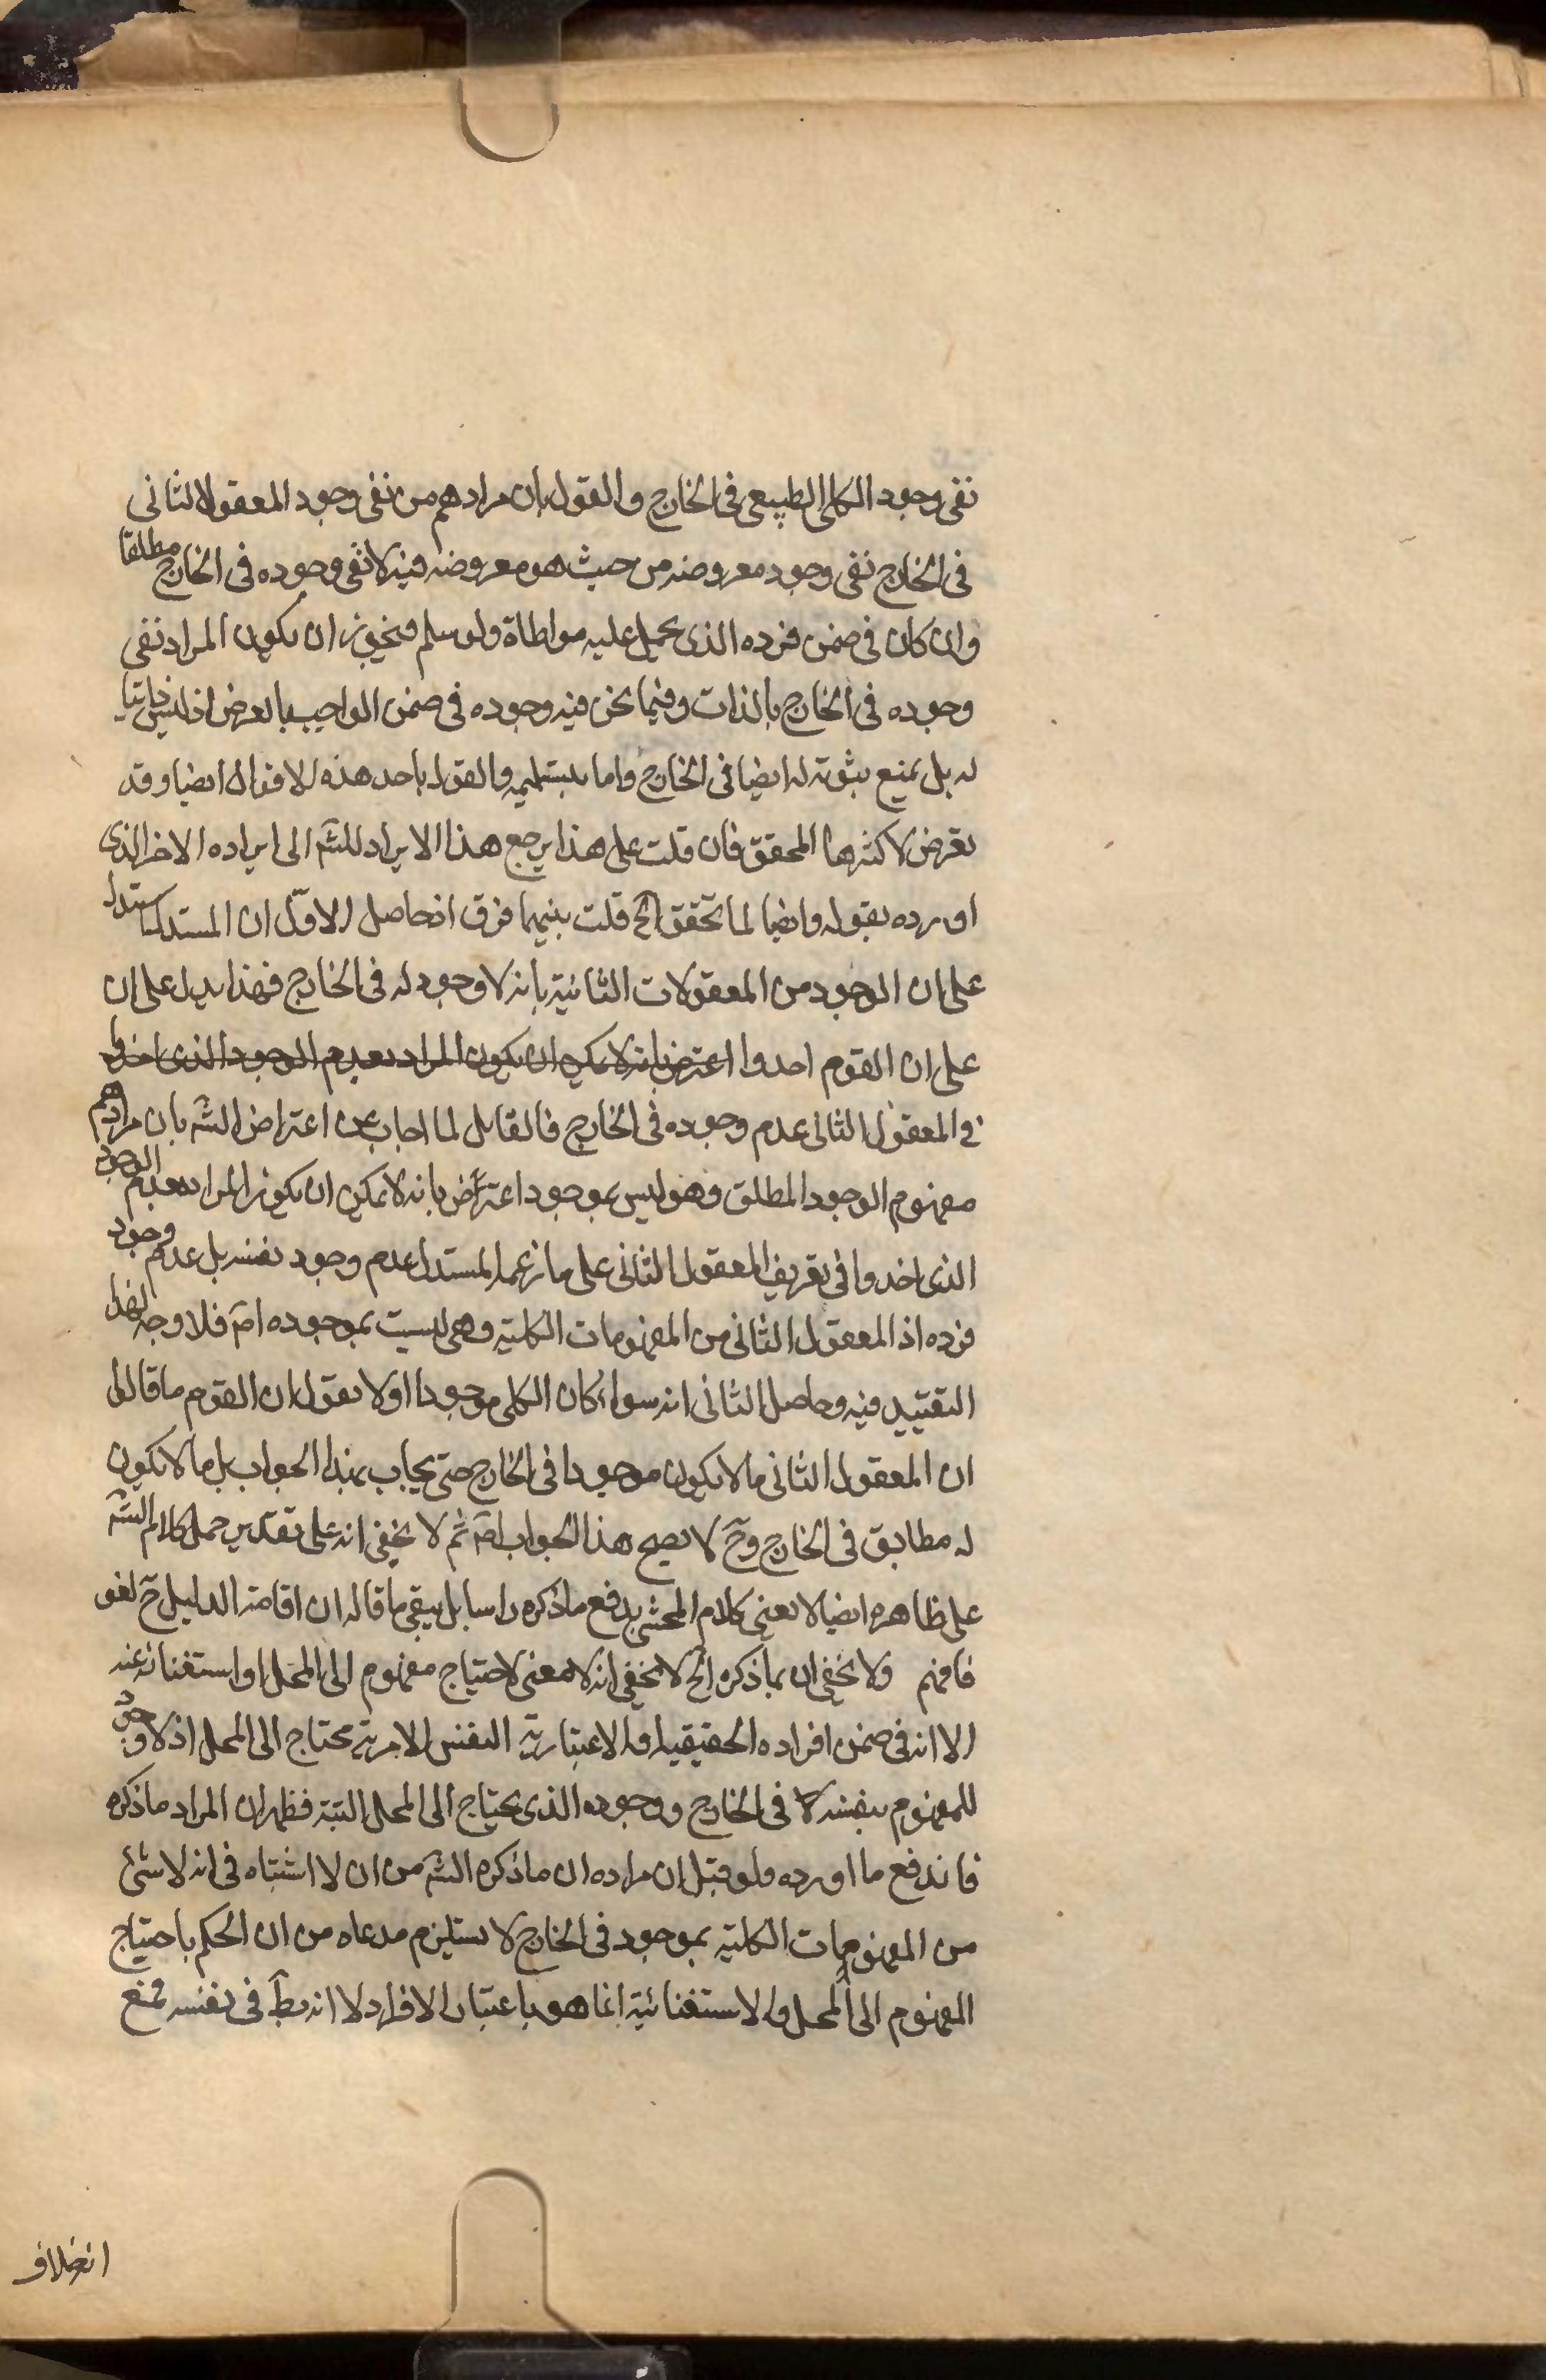 نفى وجود الكلى الطبيعى فى الخارج والقول بان مرادهم من نفى وجود المعقول الثانى
فى الخارج نفى وجود معروضه من حيث هو معروضه فيه لا نفى وجوده فى الخارج مطلقا
وان كان فى ضمن فرده الذى يحمل عليه مواطاة ولو سلم فيجوز ان يكون المراد نفى
وجوده فى الخارج بالذات وفيما نحن فيه وجوده فى ضمن الواجب بالعرض اذ ليس ذاتيا
له بل يمنع ثبوته له ايضا فى الخارج واما بتسليمه والقول باحد هذه الاقوال ايضا وقد
تعرض لاكثرها المحقق فان قلت على هذا يرجع هذا الايراد للشه الى ايراده الاخر الذى
اورده بقوله وايضا لما تحقق الخ قلت بينهما فرق اذ حاصل الاول ان المستدل استدل
على ان الوجود من المعقولات الثانية بانه لا وجود له فى الخارج فهذا يدل على ان
على ان القوم اخذوا اعترض بانه لا يمكن ان يكون المراد بعدم الوجود الذى اخذوا
فى المعقول الثانى عدم وجوده فى الخارج فالقايل لما اجاب عن اعتراض الشه بان مرادهم
مفهوم الوجود المطلق وهو ليس بموجود اعترض بانه لا يمكن ان يكون المراد بعدم الوجود
الذى اخذوا فى تعريف المعقول الثانى على ما زعمه المستدل عدم وجود نفسه بل عدم وجود
فرده اذ المعقول الثانى من المفهومات الكلية وهى ليست بموجوده اصّ فلا وجه لهذا
التقييد فيه وحاصل الثانى انه سواء كان الكلى موجودا اولا نقول ان القوم ما قالوا
ان المعقول الثانى ما لا يكون موجودا فى الخارج حتى يجاب بهذا الجواب بل ما لا يكون
له مطابق فى الخارج وحّ لا يصح هذا الجواب اصّ ثم لا يخفى انه على تقدير حمل كلام الشه
على ظاهره ايضا لا يعنى كلام المحشى بدفع ما ذكره راسا بل يبقى ما قاله ان اقامة الدليل حّ لغو
فافهم ولا يخفى ان بما ذكره الخ لا يخفى انه لا معنى لاحتياج مفهوم الى المحل او استغنائه عنه
الا انه فى ضمن افراده الحقيقية او الاعتبارية النفس الامرية محتاج الى المحل اذ لا وجود
للمفهوم بنفسه لا فى الخارج ووجوده الذى يحتاج الى المحل البتة فظهر ان المراد ما ذكره
فاندفع ما اورده ولو قيل ان مراده ان ما ذكره الشه من ان لا اشتباه فى انه لا شئ
من المفهومات الكلية بموجود فى الخارج لا يستلزم مدعاه من ان الحكم باحتياج
المفهوم الى المحل والاستغنائية انما هو باعتبار الافراد لا انه بطّ فى نفسه فمنع